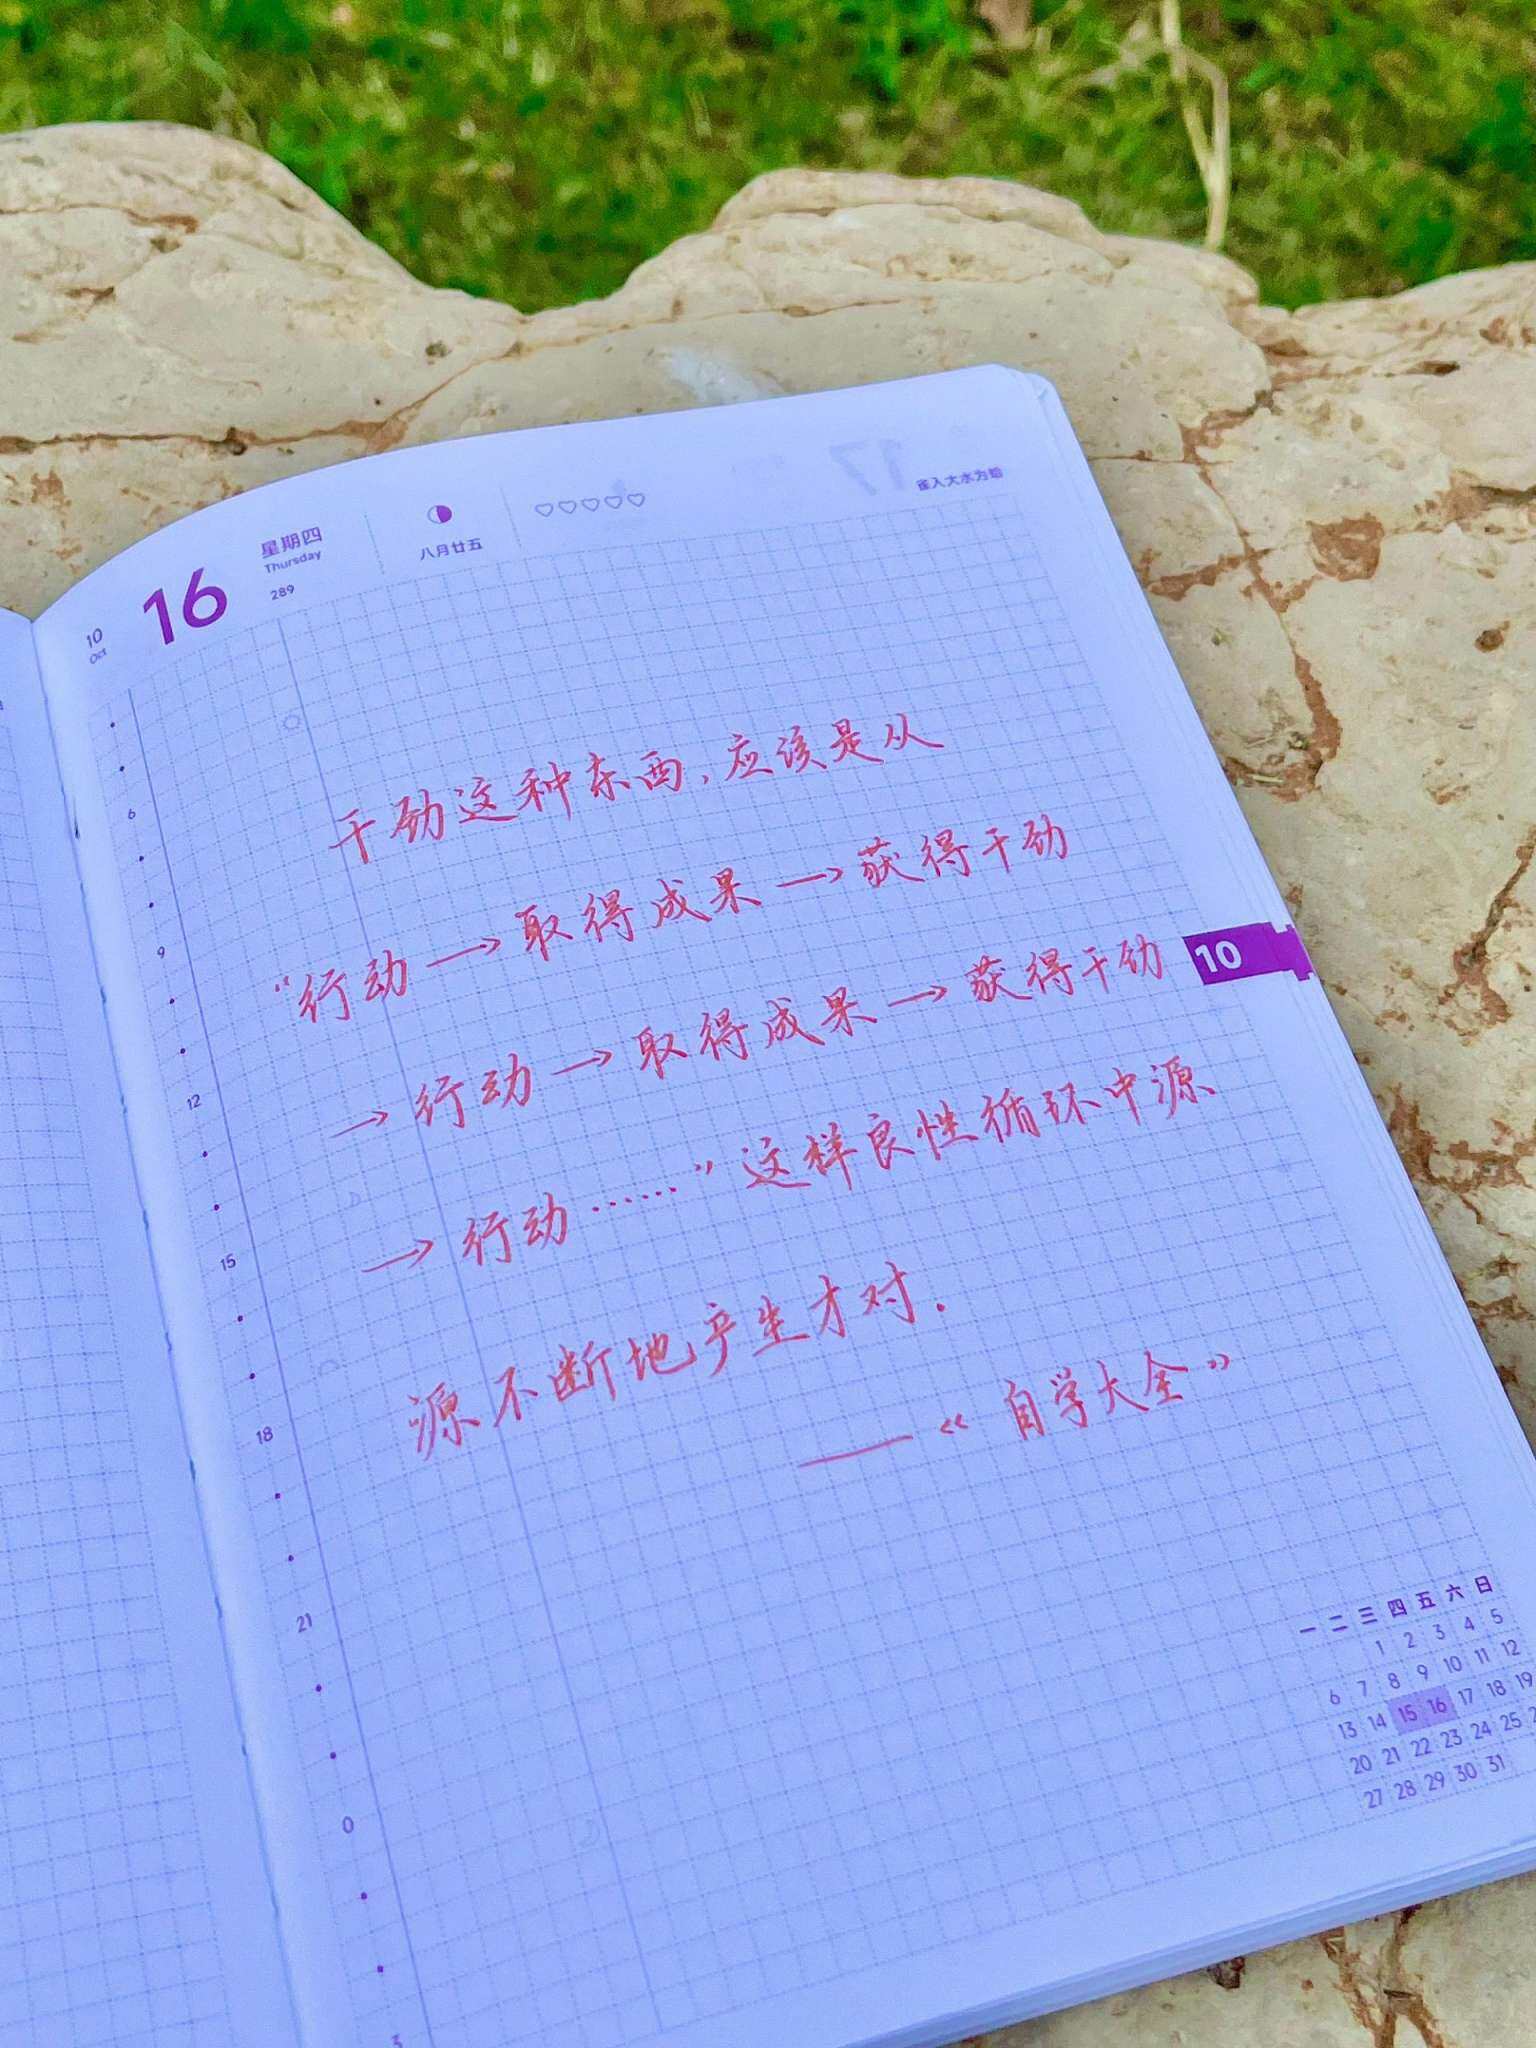 10
Oct
16
星期四
Thursday
289
八月廿五
17
雀入大水为蛤
干劲这种东西，应该是从
“行动→取得成果→获得干劲
→行动→取得成果→获得干劲
→行动……”这样良性循环中源
源不断地产生才对.
——《自学大全》
10
6
9
12
15
18
21
0
3
一 二 三 四 五 六 日
1 2 3 4 5
6 7 8 9 10 11 12
13 14 15 16 17 18 19
20 21 22 23 24 25
27 28 29 30 31